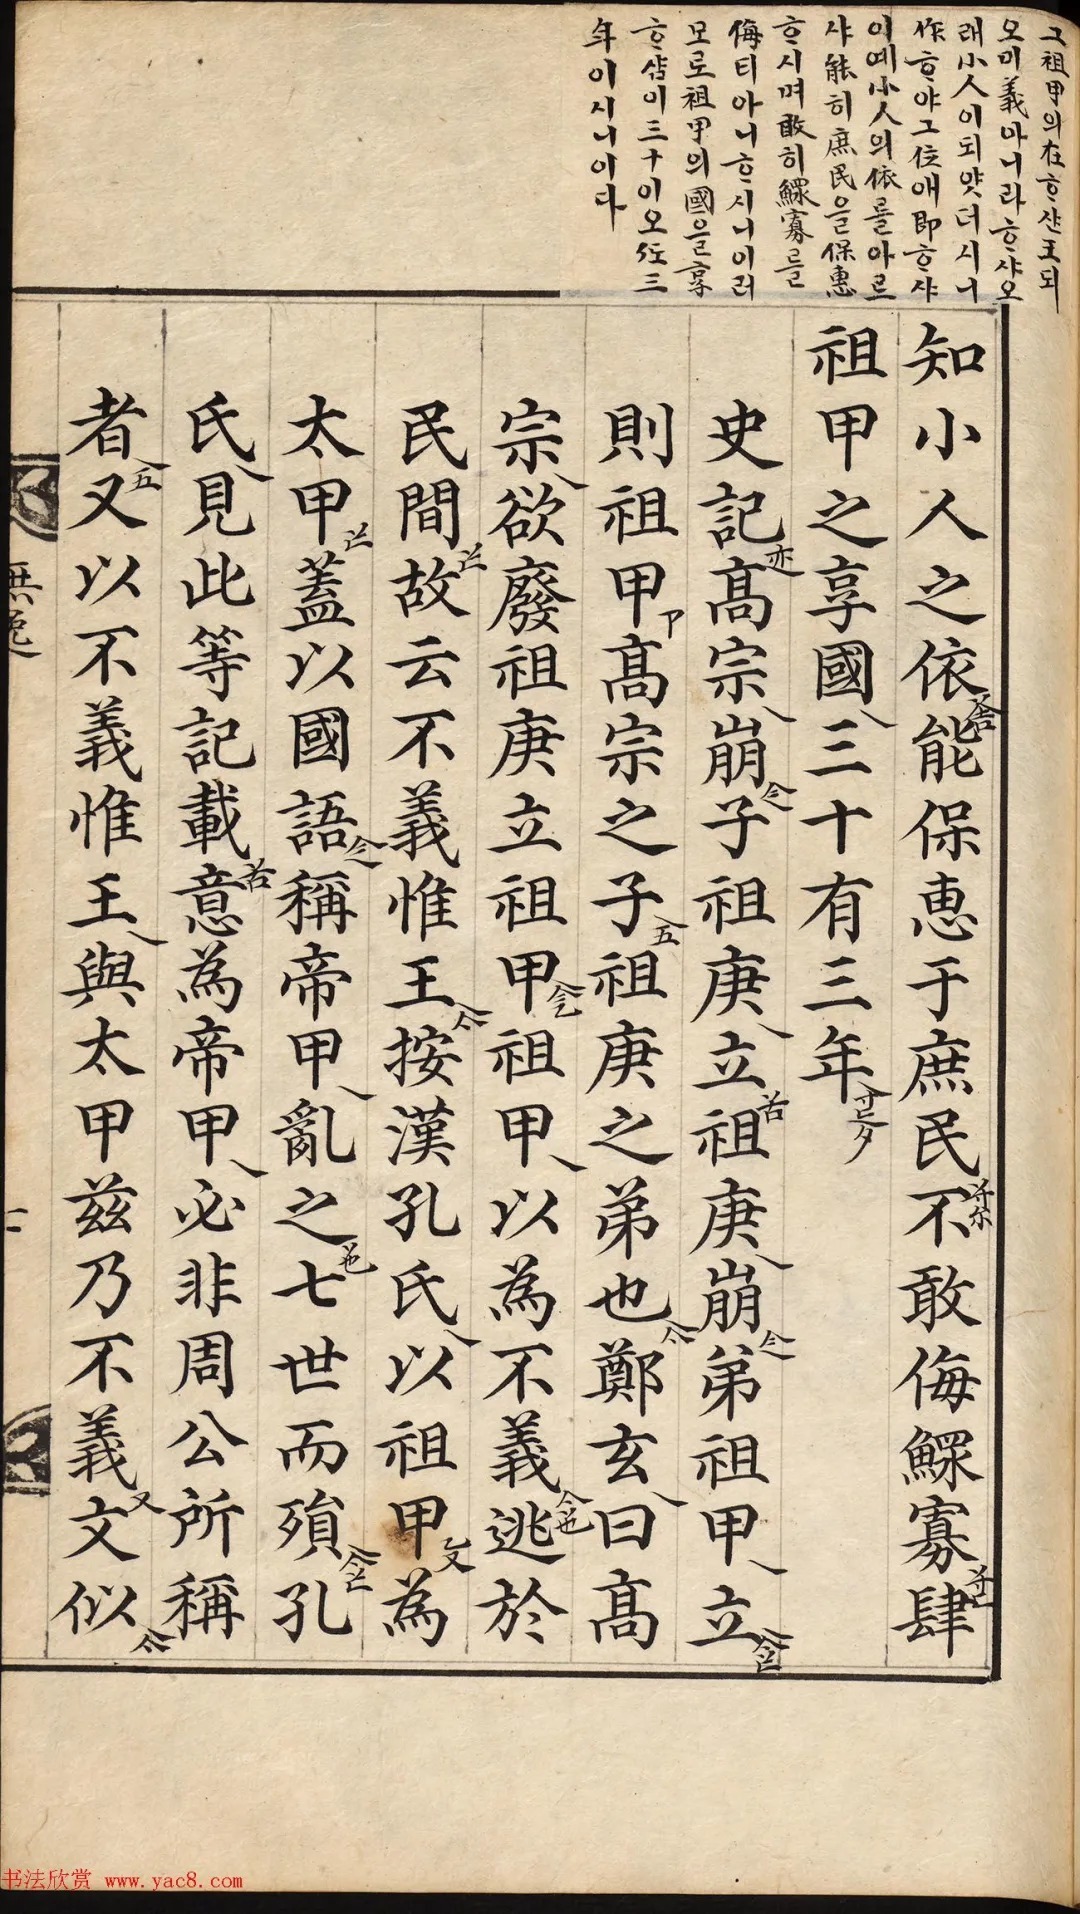 그祖甲의在ᄒᆞ샨王되
오미義아니라ᄒᆞ샤오
래小人이되얏더시니
作ᄒᆞ야그位애即ᄒᆞ샤
이예小人의依를아르
샤能히庶民을保惠
ᄒᆞ시며敢히鰥寡를
侮티아니ᄒᆞ시니이러
모로祖甲의國을享
ᄒᆞ샴이三十이오ᄯᅩ三
年이시니이다
知小人之依能保惠于庶民不敢侮鰥寡肆
祖甲之享國三十有三年
史記髙宗崩子祖庚立祖庚崩弟祖甲立
則祖甲髙宗之子祖庚之弟也鄭玄曰髙
宗欲廢祖庚立祖甲祖甲以為不義逃於
民間故云不義惟王按漢孔氏以祖甲為
太甲蓋以國語稱帝甲亂之七世而殞孔
氏見此等記載意為帝甲必非周公所稱
者又以不義惟王與太甲茲乃不義文似
無逸
书法欣赏 www.yac8.com